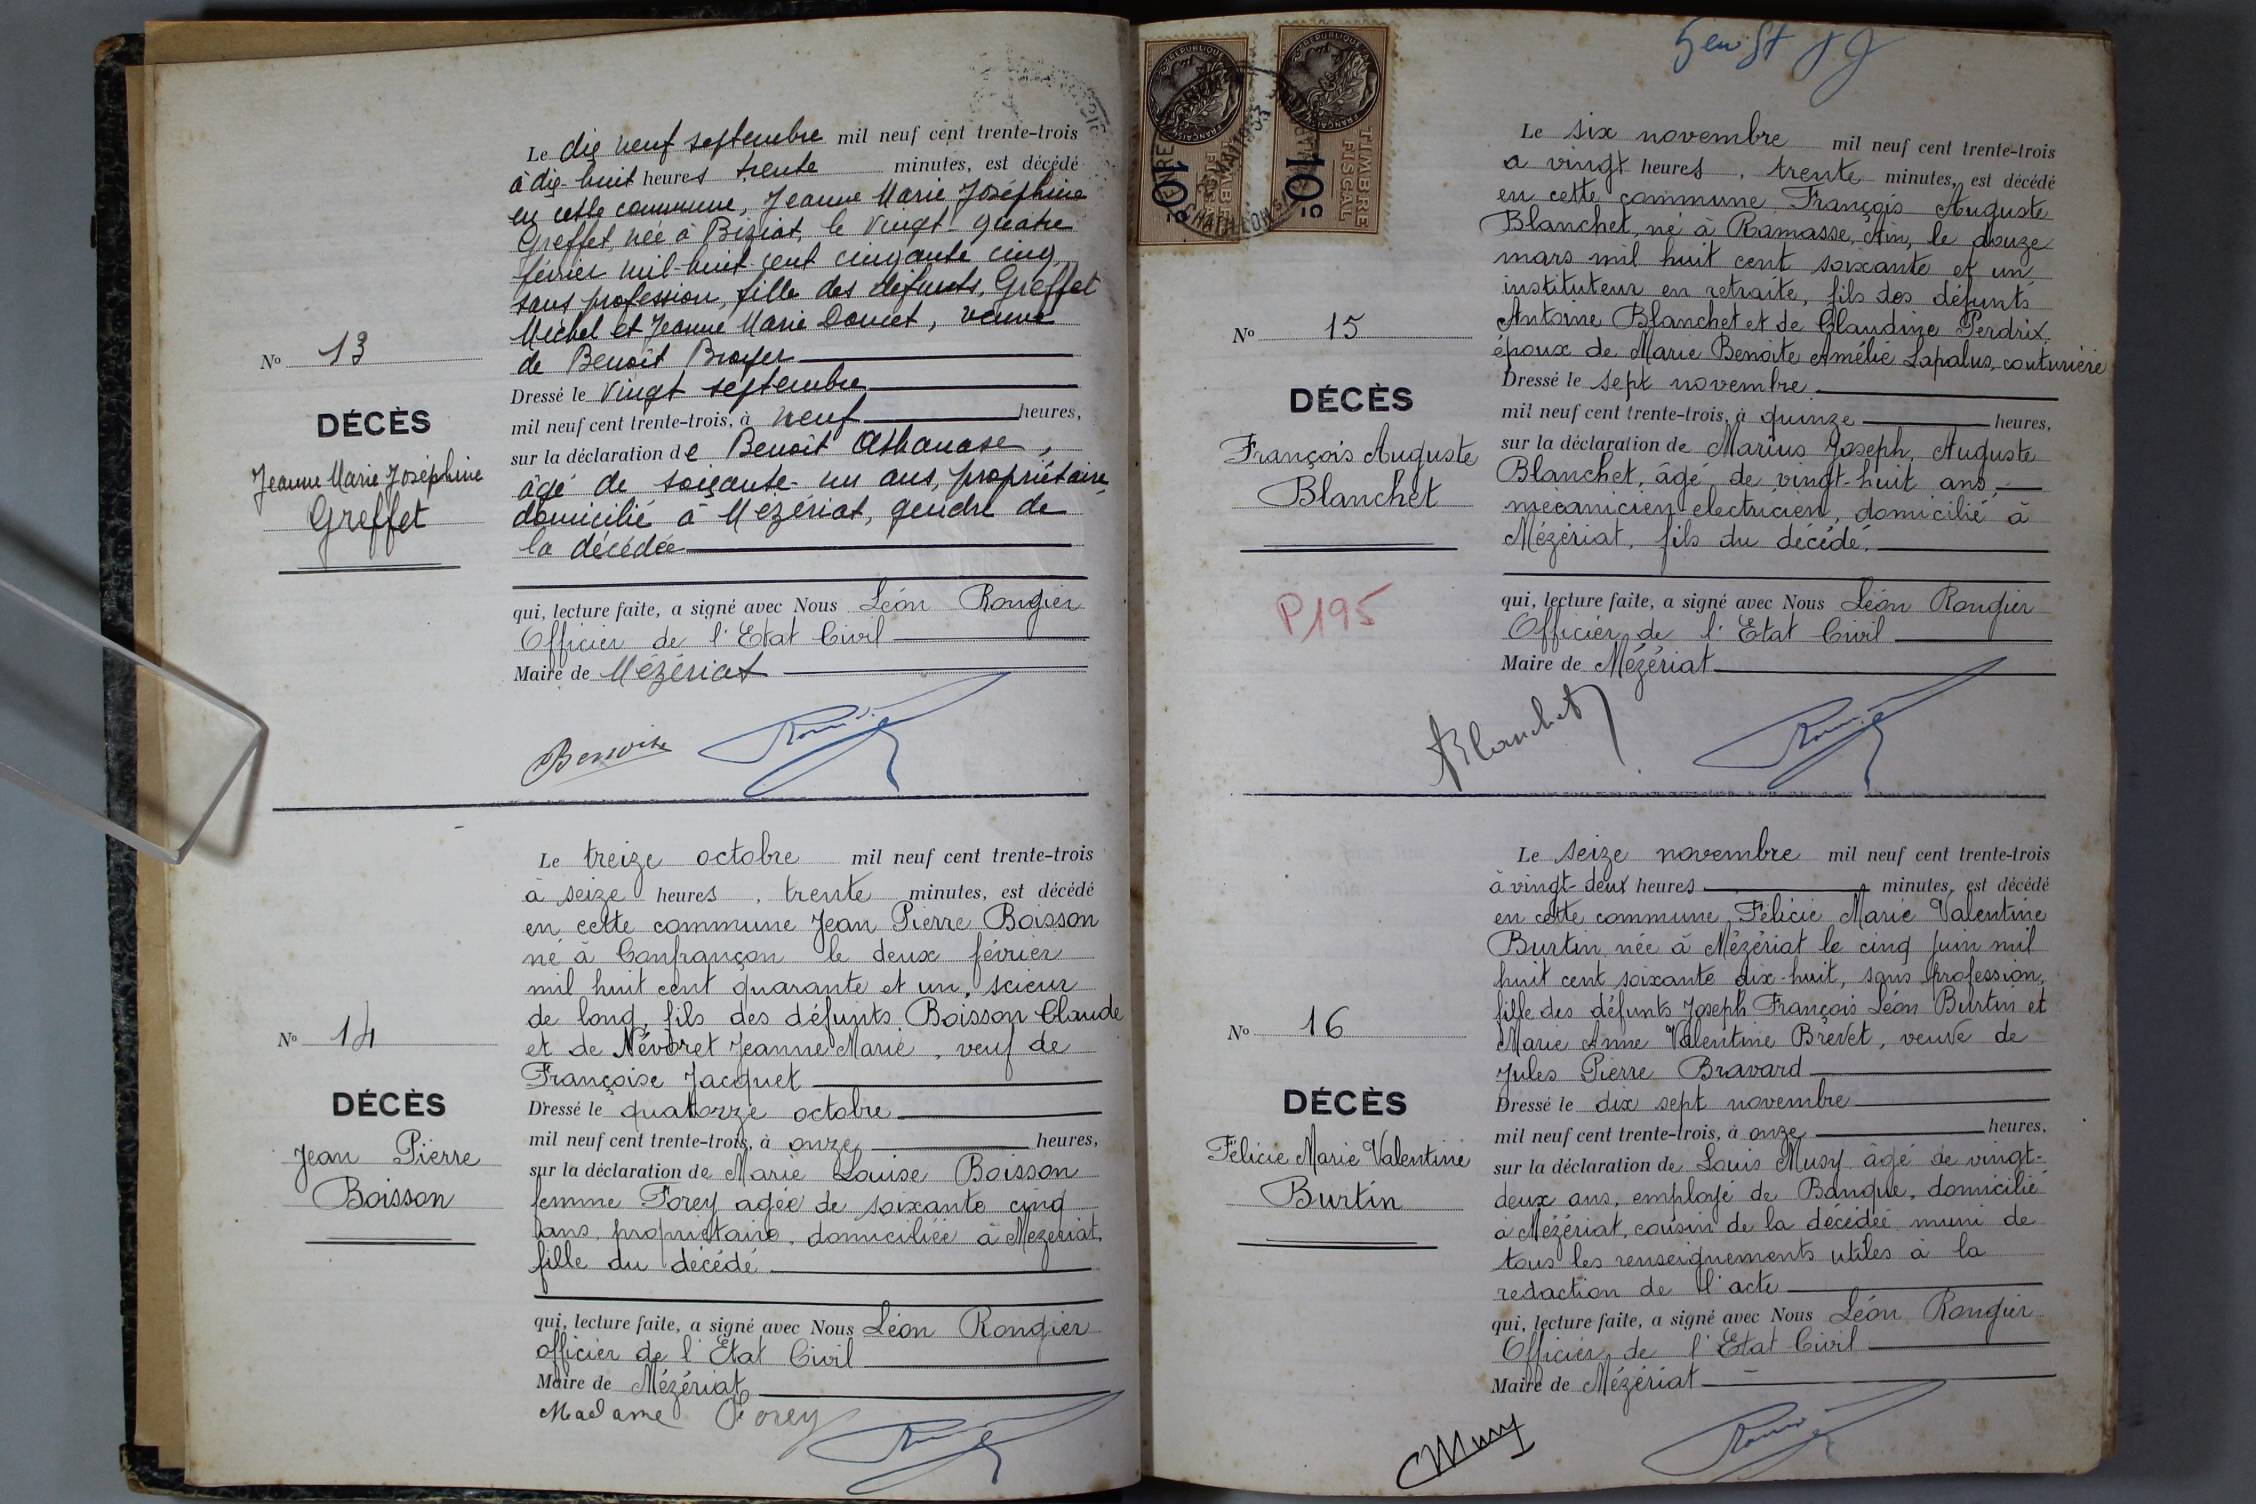 Le dix neuf septembre mil neuf cent trente-trois
à dix-huit heures trente minutes, est décédé
en cette commune, Jeanne Marie Joséphine
Greffet, née à Biziat, le vingt quatre
février mil-huit cent cinquante cinq,
sans profession, fille des défunts, Greffet
Michel et Jeanne Marie Doucet, veuve
de Benoît Broyer
Nº 13
DÉCÈS
Jeanne Marie Joséphine
Greffet
Dressé le vingt septembre
mil neuf cent trente-trois, à neuf heures,
sur la déclaration de Benoît Athanase,
âgé de soixante-un ans, propriétaire
domicilié à Mézériat, gendre de
la décédée
qui, lecture faite, a signé avec Nous Léon Rongier
Officier de l'Etat Civil
Maire de Mézériat
Benoit
Le treize octobre mil neuf cent trente-trois
à seize heures, trente minutes, est décédé
en cette commune Jean Pierre Boisson
né à Confrançon le deux février
mil huit cent quarante et un, scieur
de long, fils des défunts Boisson Claude
et de Névoret Jeanne Marie, veuf de
Françoise Jacquet
Nº 14
DÉCÈS
Jean Pierre
Boisson
Dressé le quatorze octobre
mil neuf cent trente-trois, à onze heures,
sur la déclaration de Marie Louise Boisson
femme Forey agée de soixante cinq
ans, propriétaire, domiciliée à Mézériat,
fille du décédé
qui, lecture faite, a signé avec Nous Léon Rongier
officier de l'Etat Civil
Maire de Mézériat
Madame Forey
TIMBRE
FISCAL
10c
TIMBRE
FISCAL
10c
Le six novembre mil neuf cent trente-trois
a vingt heures, trente minutes, est décédé
en cette commune François Auguste
Blanchet, né à Ramasse, Ain, le douze
mars mil huit cent soixante et un
instituteur en retraite, fils des défunts
Antoine Blanchet et de Claudine Perdrix,
époux de Marie Benoite Amélie Lapalus, couturière
Nº 15
DÉCÈS
François Auguste
Blanchet
P195
Dressé le sept novembre
mil neuf cent trente-trois, à quinze heures,
sur la déclaration de Marius Joseph, Auguste
Blanchet, âgé de vingt-huit ans,
mécanicien electricien, domicilié à
Mézériat, fils du décédé,
qui, lecture faite, a signé avec Nous Léon Rongier
Officier de l'Etat Civil
Maire de Mézériat
Blanchet
Le seize novembre mil neuf cent trente-trois
à vingt-deux heures minutes, est décédé
en cette commune Félicie Marie Valentine
Burtin née à Mézériat le cinq juin mil
huit cent soixante dix-huit, sans profession,
fille des défunts Joseph François Léon Burtin et
Marie Anne Valentine Brevet, veuve de
Jules Pierre Bravard
Nº 16
DÉCÈS
Félicie Marie Valentine
Burtin
Dressé le dix sept novembre
mil neuf cent trente-trois, à onze heures,
sur la déclaration de Louis Musy âgé de vingt-
deux ans, employé de Banque, domicilié
à Mézériat, cousin de la décédée muni de
tous les renseignements utiles à la
redaction de l'acte
qui, lecture faite, a signé avec Nous Léon Rongier
Officier de l'Etat Civil
Maire de Mézériat
Musy